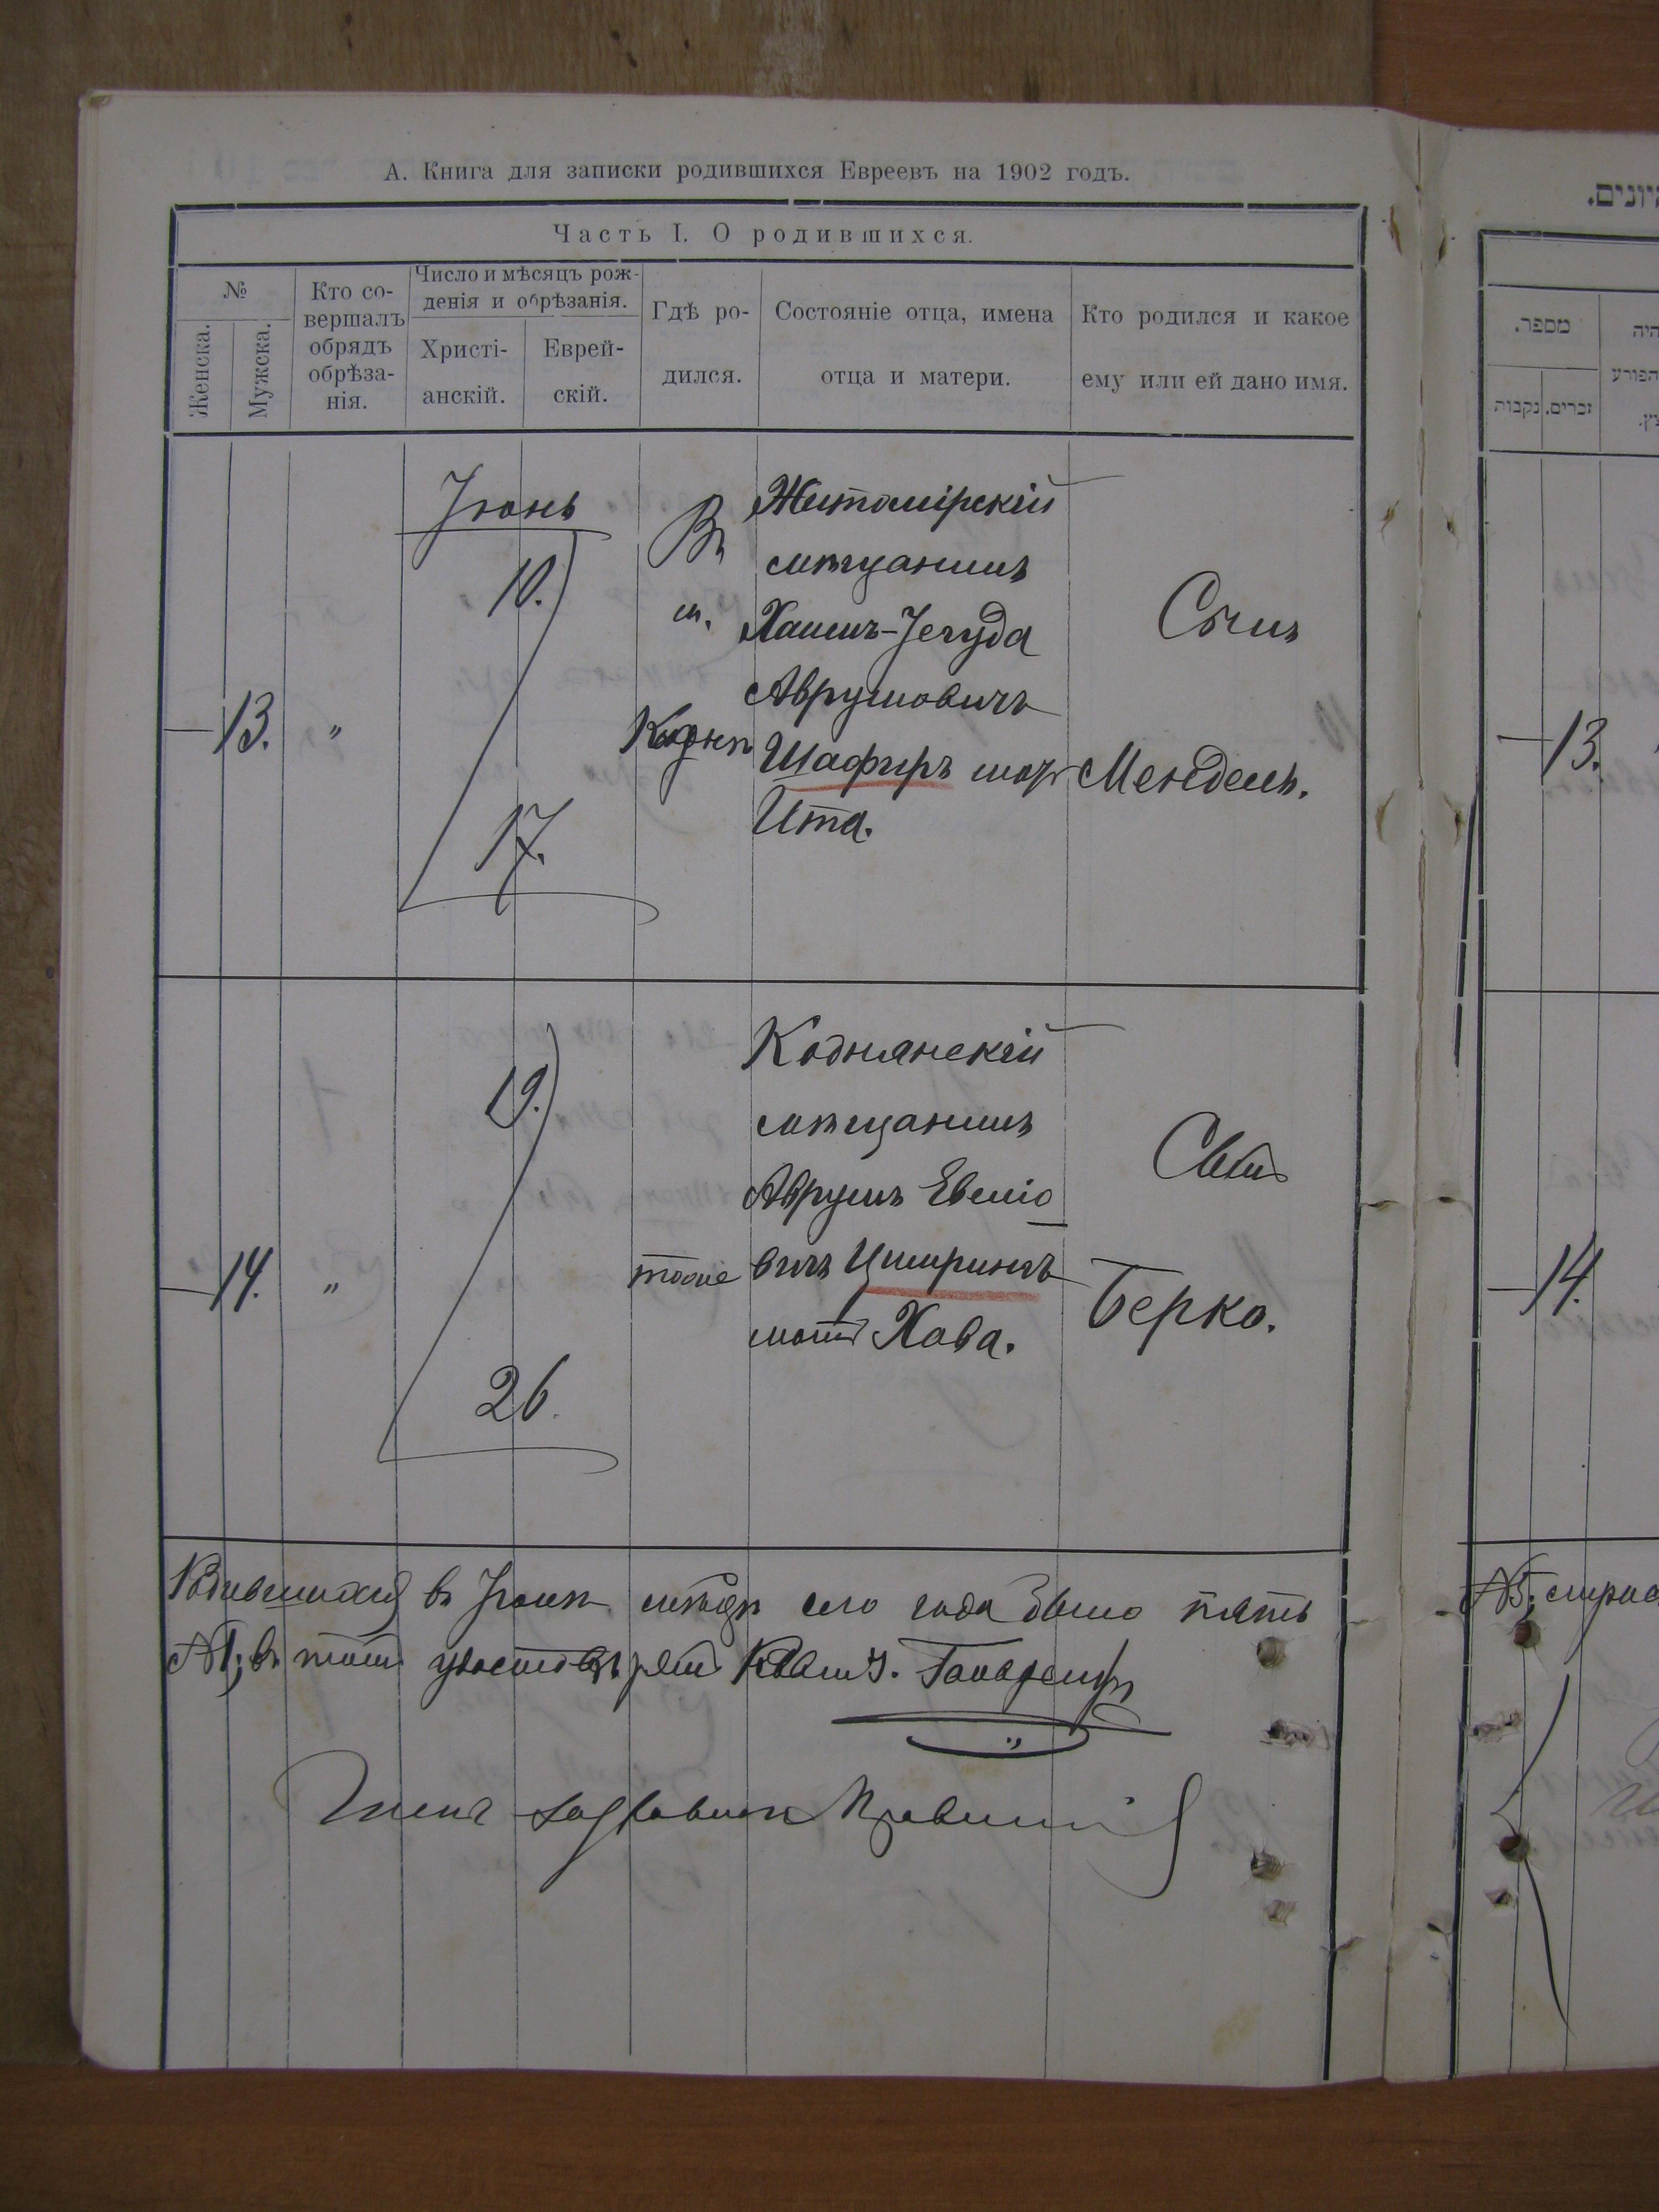 А. Книга для записки родившихся Евреевъ на 1902 годъ.
Часть I. О родившихся.
№
Женска.
Мужска.
Кто со-
вершалъ
обрядъ
обрѣза-
нія.
Число и мѣсяцъ рож-
денія и обрѣзанія.
Христі-
анскій.
Еврей-
скій.
Гдѣ ро-
дился.
Состояніе отца, имена
отца и матери.
Кто родился и какое
ему или ей дано имя.
13.
"
Іюнь
10.
17.
Въ
м.
Коднѣ
Житомірскій
мѣщанинъ
Хаимъ-Іегуда
Аврумовичъ
Шафиръ
Ита.
Сынъ
Мендель.
14.
"
19.
26.
тоже
Коднянскій
мѣщанинъ
Аврумъ
вичъ
мать Хава.
Сынъ
Берко.
Родившихся въ Іюнѣ мѣсяцѣ сего года было пять
№ въ томъ
יונים.
מספר.
זכרים.
נקבות
היה
הפורע
13.
14.
№